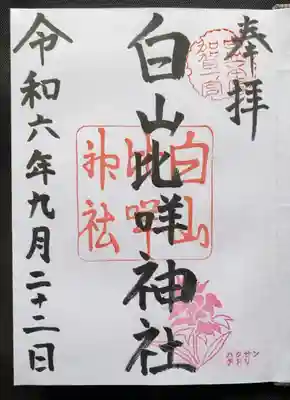 奉拝
白山比咩神社
白山
比咩
神社
令和六年九月二十二日
ハクサン
チドリ